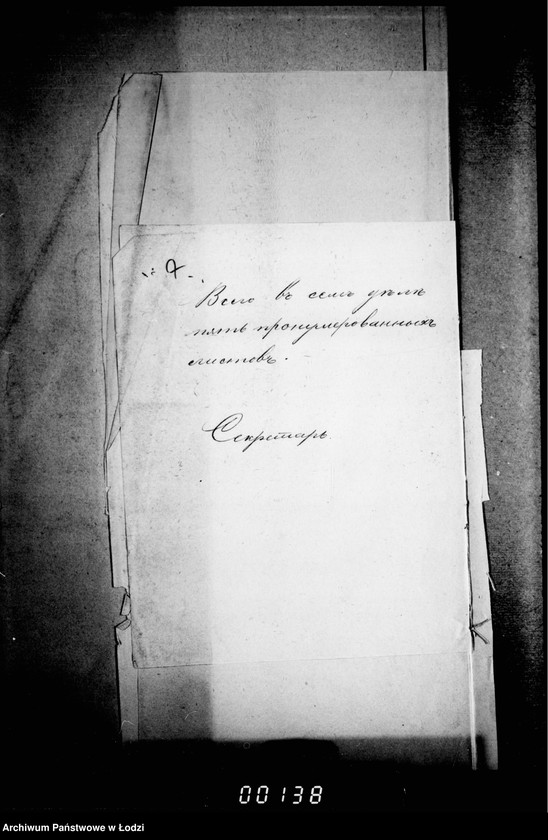 Всего въ семъ дѣлѣ
пять пронумерованныхъ
листовъ.
Секретарь
00138
Archiwum Państwowe w Łodzi